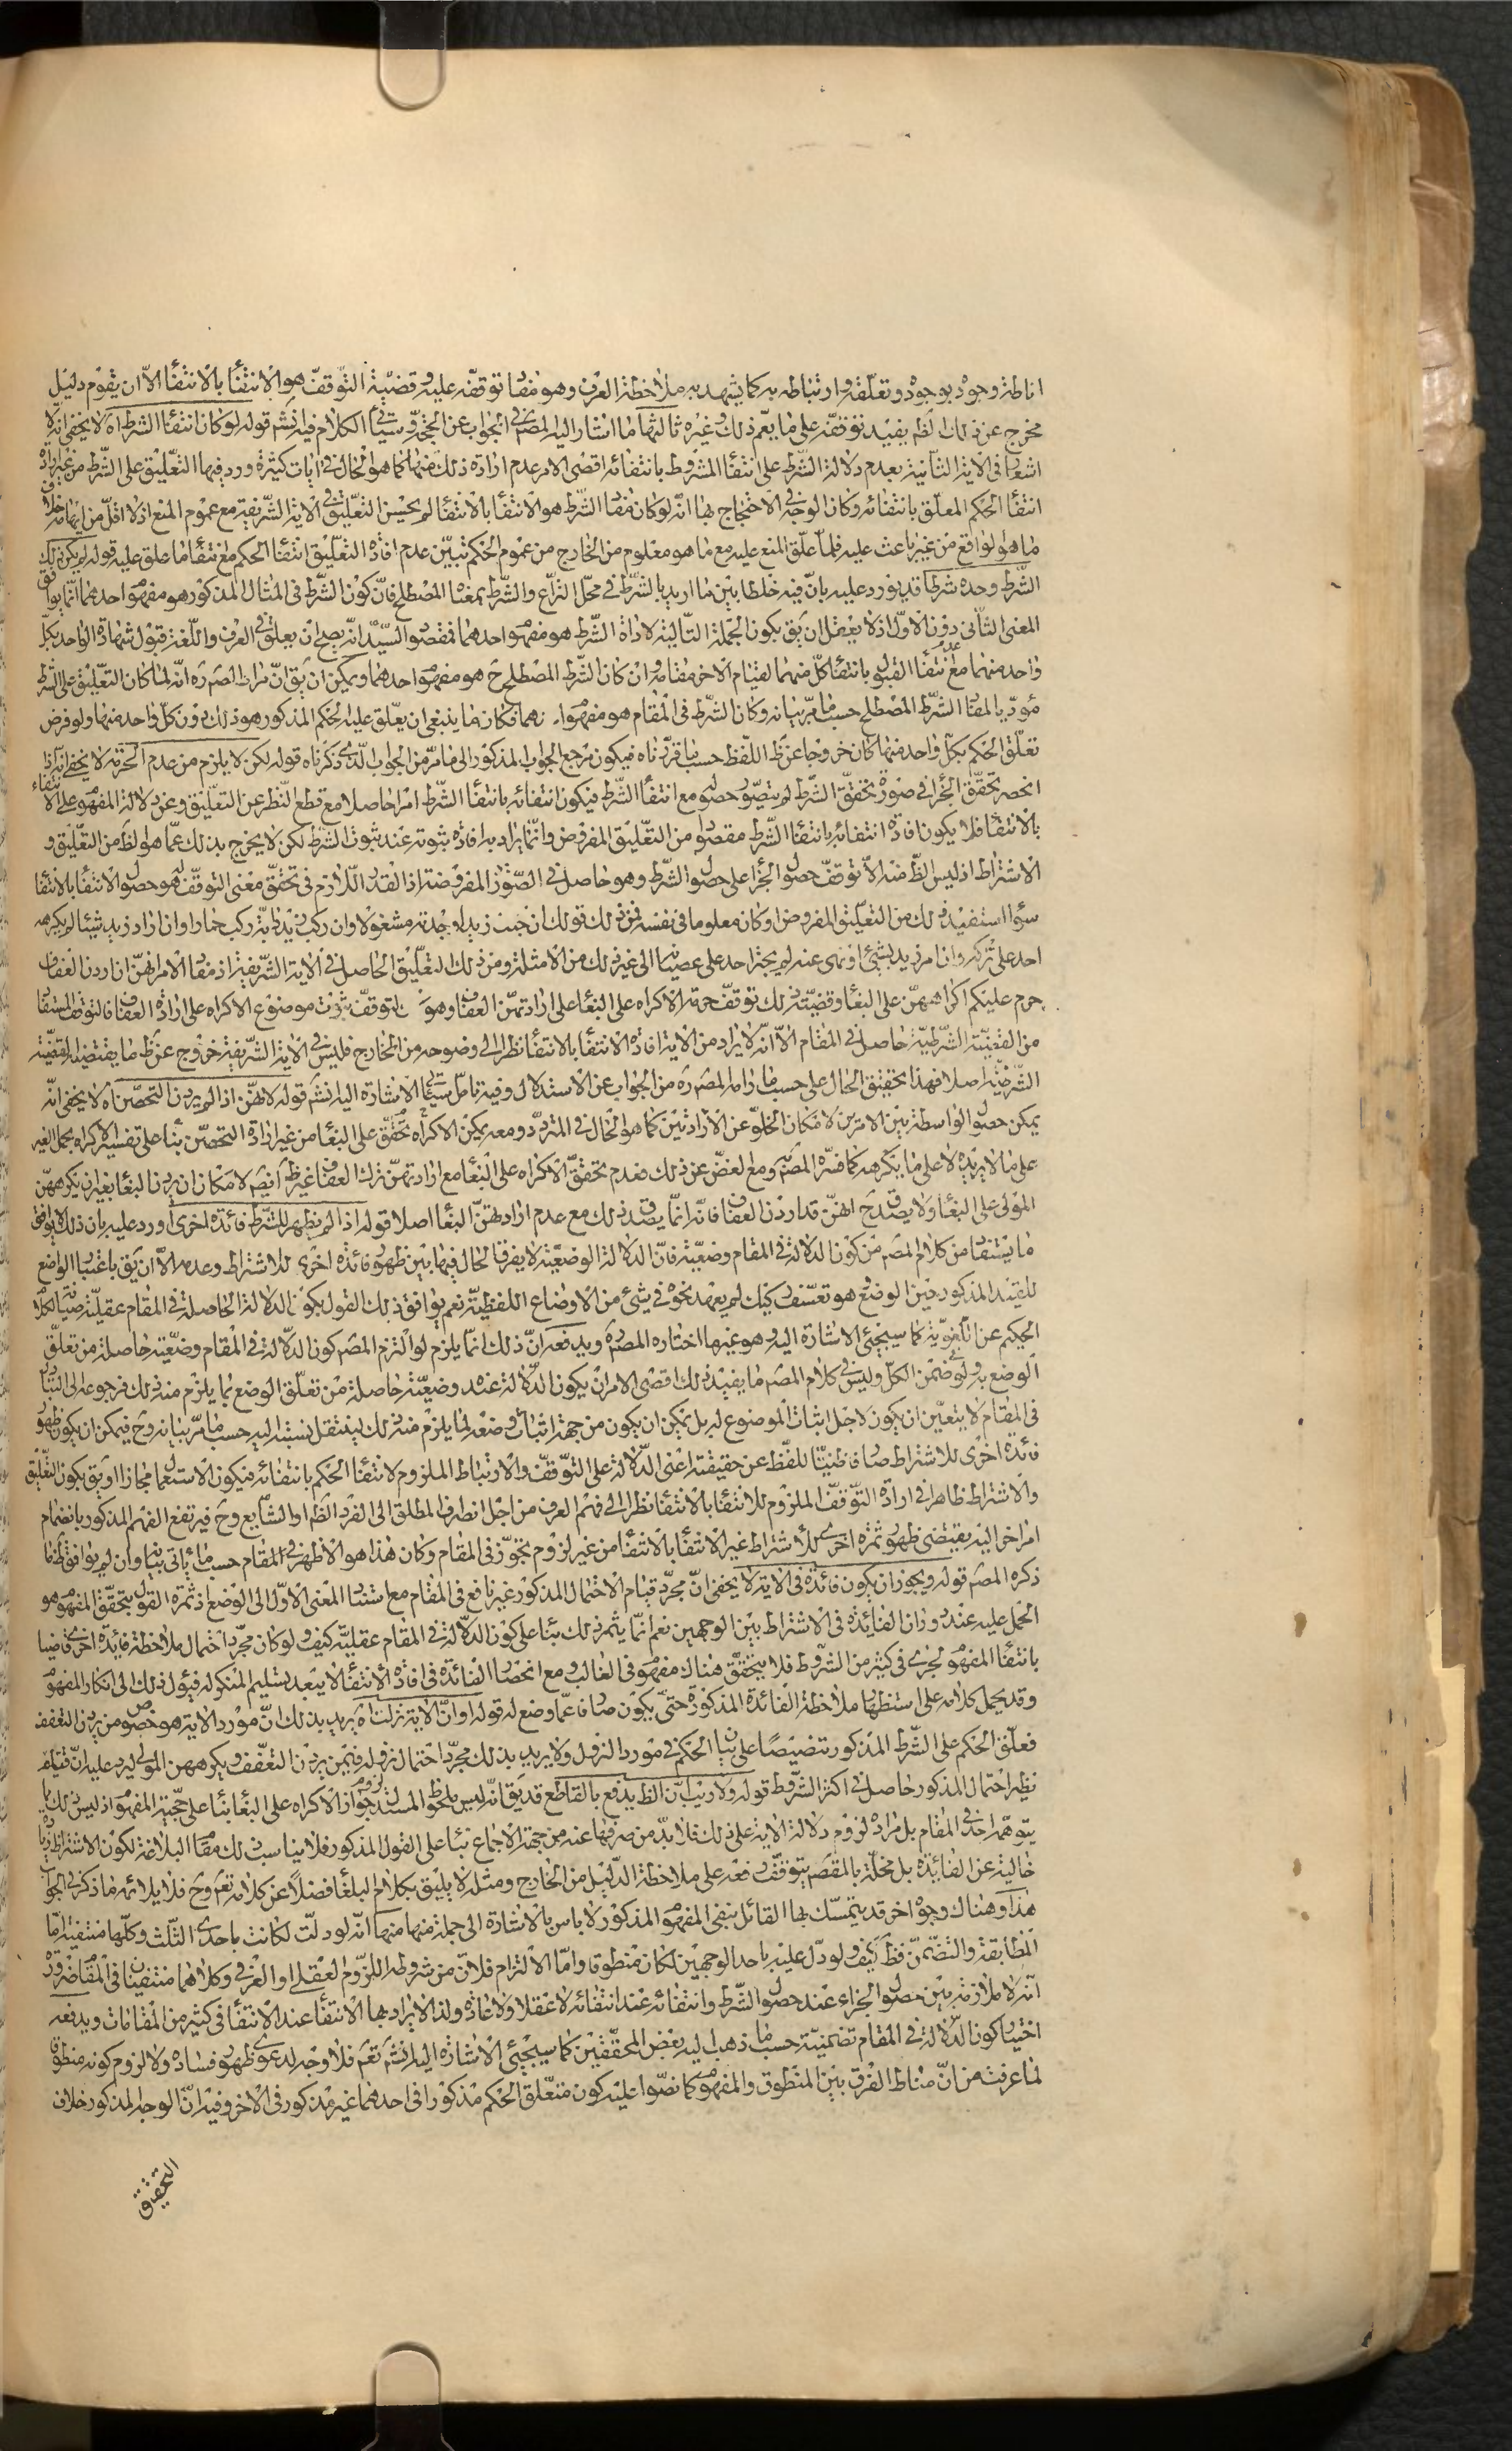 اناطة وجود بوجود وتعلّقه وارتباطه به كما يشهد به ملاحظة العرف وهو مفاد توقفه عليه وقضيّة التّوقف هو الانتفا بالانتفا الّا ان يقوم دليل
مخرج عن ذلك الظم يفيد توقفه على ما يعمّ ذلك وغيره ثالثها ما اشار اليه المصنف في الجواب عن الحجّة وسيأتي الكلام فيه نشم قوله لو كان انتفا الشرط اه لا يخفى انه لا
اشعار في الاية الثانية بعدم دلالة الشّرط على انتفا المشروط بانتفائه اقصى الامر عدم ارادة ذلك منها كما هو الحال في ايات كثيرة ورد فيها التعليق على الشّرط من غير ارادة
انتفا الحكم المعلّق بانتفائه وكان الوجه في الاحتجاج بها انّه لو كان مفاد الشّرط هو الانتفا بالانتفا لم يحسن التعليق في الاية الشّريفة مع عموم المنع اذ لا اقلّ من ايهامه خلاف
ما هو الواقع من غير باعث عليه فلما علّق المنع عليه مع ما هو معلوم من الخارج من عموم الحكم تبيّن عدم افادة التعليق انتفا الحكم مع انتفا ما علق عليه قوله لم يكن ذلك
الشّرط وحده شرطا قد يورد عليه بانّ فيه خلطا بين ما اريد بالشّرط في محلّ النزاع والشّرط بمعناه المصطلح فانّ كون الشّرط في المثال المذكور هو مفهوم احدهما انّما يوافق
المعنى الثّانى دون الاوّل اذ لا يعقل ان يق بكون الجملة التالية لاداة الشّرط هو مفهوم احدهما فمقصود السيّد انّه يصلح ان يعلق في العرف واللّغة قبول شهادة الواحد بكلّ
واحد منهما مع عدم انتفا القبول بانتفا كلّ منهما لقيام الاخر مقامه وان كان الشّرط المصطلح ح هو مفهوم احدهما ويمكن ان يق انّ مراد المصنف ره انّه لما كان التعليق على الشّرط
مؤدّيا لمفاد الشّرط المصطلح حسب ما مرّ بيانه وكان الشّرط في المقام هو مفهوم احدهما فكان ما ينبغي ان يعلّق عليه الحكم المذكور هو ذلك دون كلّ واحد منهما ولو فرض
تعلّق الحكم بكلّ واحد منهما كان خروجا عن ظ اللّفظ حسب ما قرّرناه فيكون مرجع الجواب المذكور الى ما مرّ من الجواب الّذى ذكرناه قوله لكن لا يلزم من عدم الحرمة لا يخفى انّه اذا
انحصر تحقّق الجزا في صورة تحقّق الشّرط لم يتصوّر حصوله مع انتفا الشّرط فيكون انتفائه بانتفا الشّرط امرا حاصلا مع قطع النّظر عن التعليق وعن دلالة المفهوم على الانتفاء
بالانتفا فلا يكون افادة انتفائه بانتفا الشّرط مقصودا من التعليق المفروض وانّما يراد به افادة ثبوته عند ثبوت الشّرط لكن لا يخرج بذلك عمّا هو الظ من التعليق و
الاشتراط اذ ليس الظ منه الّا توقّف حصول الجزا على حصول الشّرط وهو حاصل في الصّورة المفروضة اذ القدر اللّازم في تحقق معنى التوقف هو حصول الانتفا بالانتفا
سوا استفيد ذلك من التعليق المفروض او كان معلوما في نفسه فمن ذلك قولك ان جئت زيدا وجدته مشغولا وان ركب زيد دابّة ركب حمارا وان اراد زيد شيئا لم يكرهه
احد على تركه وان امر زيد بشيئ او نهى عنه لم يجتر احد على عصيانه الى غير ذلك من الامثلة ومن ذلك التعليق الحاصل في الاية الشّريفة اذ مفاد الامر انهنّ ان اردن العفاف
حرم عليكم اكراههنّ على البغا وقضيّة ذلك توقّف حرمة الاكراه على البغا على ارادتهنّ العفاف وهو التوقّف ثبوت موضوع الاكراه على ارادة العفاف فالتوقف المستفاد
من القضيّة الشّرطيّة حاصل في المقام الّا انّه لا يراد من الاية افادة الانتفا بالانتفا نظرا الى وضوحه من الخارج فليس في الاية الشّريفة خروج عن ظ ما يقتضيه القضيّة
الشّرطيّة اصلا فهذا تحقيق الحال على حسب ما رامه المصنف ره من الجواب عن الاستدلال وفيه تامّل سيأتي الاشارة اليه انشم قوله لانهّن اذا لم يردن التحصّن اه لا يخفى انّه
يمكن حصول الواسطة بين الامرين لامكان الخلوّ عن الارادتين كما هو الحال في المتردّد ومعه يمكن الاكراه تحقّق على البغا من غير ارادة التحصّن بنا على تفسير الاكراه بحمل الغير
على ما لا يريده لا على ما يكرهه كما فسّره المصنف ومع الغضّ عن ذلك فعدم تحقّق الاكراه على البغا مع ارادتهنّ ترك العفاف غير ظ ايضم لامكان ان يردن البغا بغير ان يكرههنّ
المولى على البغا ولا يصدق ح انهنّ قد اردن العفاف فانّه انّما يصدق ذلك مع عدم ارادتهنّ البغا اصلا قوله اذا لم يظهر للشّرط فائدة اخرى اورد عليه بان ذلك لا يوافق
ما يستفا من كلام المصنف من كون الدلالة في المقام وضعيّة فانّ الدلالة الوضعيّة لا يفرق الحال فيها بين ظهور فائدة اخرى للاشتراط وعدمه الّا ان يق باعتبار الواضع
للقيد المذكور حين الوضع هو تعسّف ركيك لم يعهد نحوه في شيئ من الاوضاع اللفظيّة نعم يوافق ذلك القول بكون الدلالة الحاصلة في المقام عقليّة صيانة لكلام
الحكيم عن اللّغويّة كما سيجئ الاشارة اليه وهو غير ما اختاره المصنف ويدفعه انّ ذلك انّما يلزم لو التزم المصنف كون الدلالة في المقام وضعيّة حاصلة من تعلّق
الوضع به ولو في ضمن الكلّ وليس في كلام المصنف ما يفيد ذلك اقصى الامر ان يكون الدّلالة عنده وضعيّة حاصلة من تعلّق الوضع بما يلزم منه ذلك فرجوعه الى التبادر
في المقام لا يتعيّن ان يكون لاجل اثبات الموضوع له بل يمكن ان يكون من جهة اثبات وضعه لما يلزم منه ذلك لينتقل بسببه اليه حسب ما مرّ بيانه وح فيمكن ان يكون ظهور
فائدة اخرى للاشتراط صارفا ظنيّا للفّظ عن حقيقته اعنى الدّلالة على التّوقّف والارتباط الملزوم لانتفا الحكم بانتفائه فيكون الاستعمال مجازا او يق بكون التعليق
والاشتراط ظاهرا في ارادة التّوقّف الملزوم للانتفا بالانتفا نظرا الى فهم العرف من اجل انصراف المطلق الى الفرد الظم او الشايع وح فيرتفع الفهم المذكور بانضمام
امر اخر اليه يقتضى ظهور ثمرة اخرى للاشتراط غير الانتفا بالانتفا من غير لزوم تجوّز في المقام وكان هذا هو الاظهر في المقام حسب ما يأتي بيانه وان لم يوافق ظ ما
ذكره المصنف قوله ويجوز ان يكون فائدة في الاية لا يخفى انّ مجرّد قيام الاحتمال المذكور غير نافع في المقام مع استناد المعنى الاوّل الى الوضع اذ ثمرة القول بتحقّق المفهوم هو
الحمل عليه عند دوران الفائدة في الاشتراط بين الوجهين نعم انّما يثمر ذلك بنا على كون الدّلالة في المقام عقليّة كيف ولو كان مجرّد احتمال ملاحظة فائدة اخرى قاضيا
بانتفا المفهوم لجرى في كثير من الشّروط فلا يتحقّق هناك مفهوم في الغالب ومع انحصار الفائدة في افادة الانتفا لا يبعد تسليم المنكر له فيؤل ذلك الى انكار المفهوم
وقد يحمل كلامه على استظهار ملاحظة الفائدة المذكورة حتّى يكون صارفا عمّا وضع له قوله او انّ الاية نزلت اه يريد بذلك انّ مورد الاية هو خصوص من يردن التعفّف
فعلّق الحكم على الشّرط المذكور تنصيصا على بيان الحكم في مورد النزول ولا يريد بذلك مجرّد احتمال نزوله فيمن يردن التعفّف ويكرههن المولى ليرد عليه انّ قيام
نظير احتمال المذكور حاصل في اكثر الشّروط قوله ولا ريب انّ الظ يدفع بالقاطع قد يق انّه ليس ملحوظ المستدل لزوم جواز الاكراه على البغا بنا على حجيّة المفهوم اذ ليس ذلك ممّا
يتوهّم احد في المقام بل مراده لزوم دلالة الاية على ذلك فلا بدّ من صرفها عنه من جهة الاجماع بنا على القول المذكور فلا يناسب ذلك مقام البلاغة لكون الاشتراط زيادة
خالية عن الفائدة بل مخلّة بالمقصم يتوقّف دفعه على ملاحظة الدّليل من الخارج ومثله لا يليق بكلام البلغا فضلا عن كلامه تعم وح فلا يلائمه ما ذكر في الجواب
هذا وهناك وجوه اخر قد يتمسّك بها القائل بنفى المفهوم المذكور لا باس بالاشارة الى جملة منها منها انّه لو دلّت لكانت باحدى الثّلث وكلّها منتفية امّا
المطابقة والتضّمنّ فظ كيف ولو دلّ عليه باحد الوجهين لكان منطوقا وامّا الالتزام فلانّ من شروطه اللّزوم العقلى او العرفى وكلاهما منتفيان في المقام ضرورة
انّه لا ملازمة بين حصول الجزاء عند حصول الشّرط وانتفائه عند انتفائه لا عقلا ولا عادة ولذا لا يراد بها الانتفا عند الانتفا في كثير من المقامات ويدفعه
اختيار كون الدّلالة في المقام تضمنيّة حسب ما ذهب اليه بعض المحقّقين كما سيجئ الاشارة اليه انشم تعم فلا وجه لدعوى ظهور فساده ولا لزوم كونه منطوقا
لما عرفت من انّ مناط الفرق بين المنطوق والمفهوم كما نصّوا عليه كون متعلّق الحكم مذكورا في احدهما غير مذكور في الاخر وفيه انّ الوجه المذكور خلاف
التحقيق